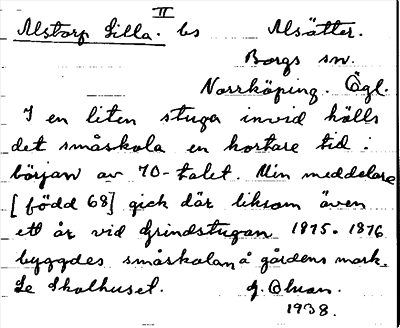 II
Alstorp Lilla. bs Alsätter.
Borgs sn.
Norrköping. Ögl.
I en liten stuga invid hölls
det småskola en kortare tid i
början av 70-talet. Min meddelare
[född 68] gick där liksom även
ett år vid Grindstugan 1875. 1876
byggdes småskolan å gårdens mark.
Se Skolhuset. G. Ohson.
1938.